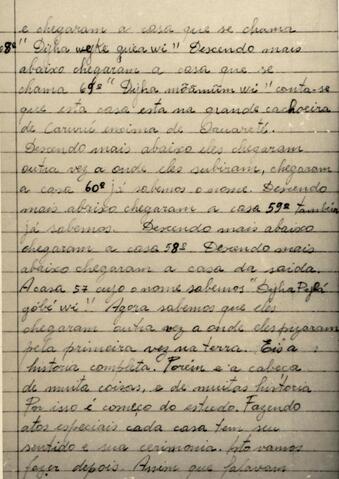 e chegaram a casa que se chama
68ª "Dijha wejke guea wi" Descendo mais
abaixo chegaram a casa que se
chama 69ª "Dijha mõãmũm wi" conta-se
que esta casa esta na grande cachoeira
de Carurú encima de Iauareté.
Descendo mais abaixo eles chegaram
outra vez a onde eles subiram, chegaram
a casa 60ª já sabemos o nome. Descendo
mais abaixo chegaram a casa 59ª também
já sabemos. Descendo mais abaixo
chegaram a casa 58ª Descendo mais
abaixo chegaram a casa da saida.
A casa 57 cujo o nome sabemos "Dijha
góbé wi" Agora sabemos que eles
chegaram outra vez a onde eles pizaram
pela primeira vez na terra. Eis a
historia completa. Porém e a cabeça
de muita coisas, e de muitas historia
Por isso é começo do estudo. Fazendo
atos especiais cada casa tem seu
sentido e sua cerimonia. Isto vamos
fazer depois. Assim que falavam